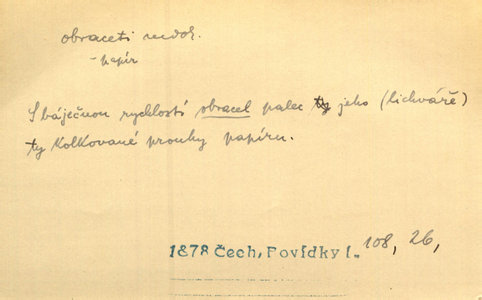 obraceti nedok.
- papír
S báječnou rychlostí obracel palec jeho (lichváře)
ty kolkované prouhy papíru.
1878 Čech, Povídky I. 108, 26,